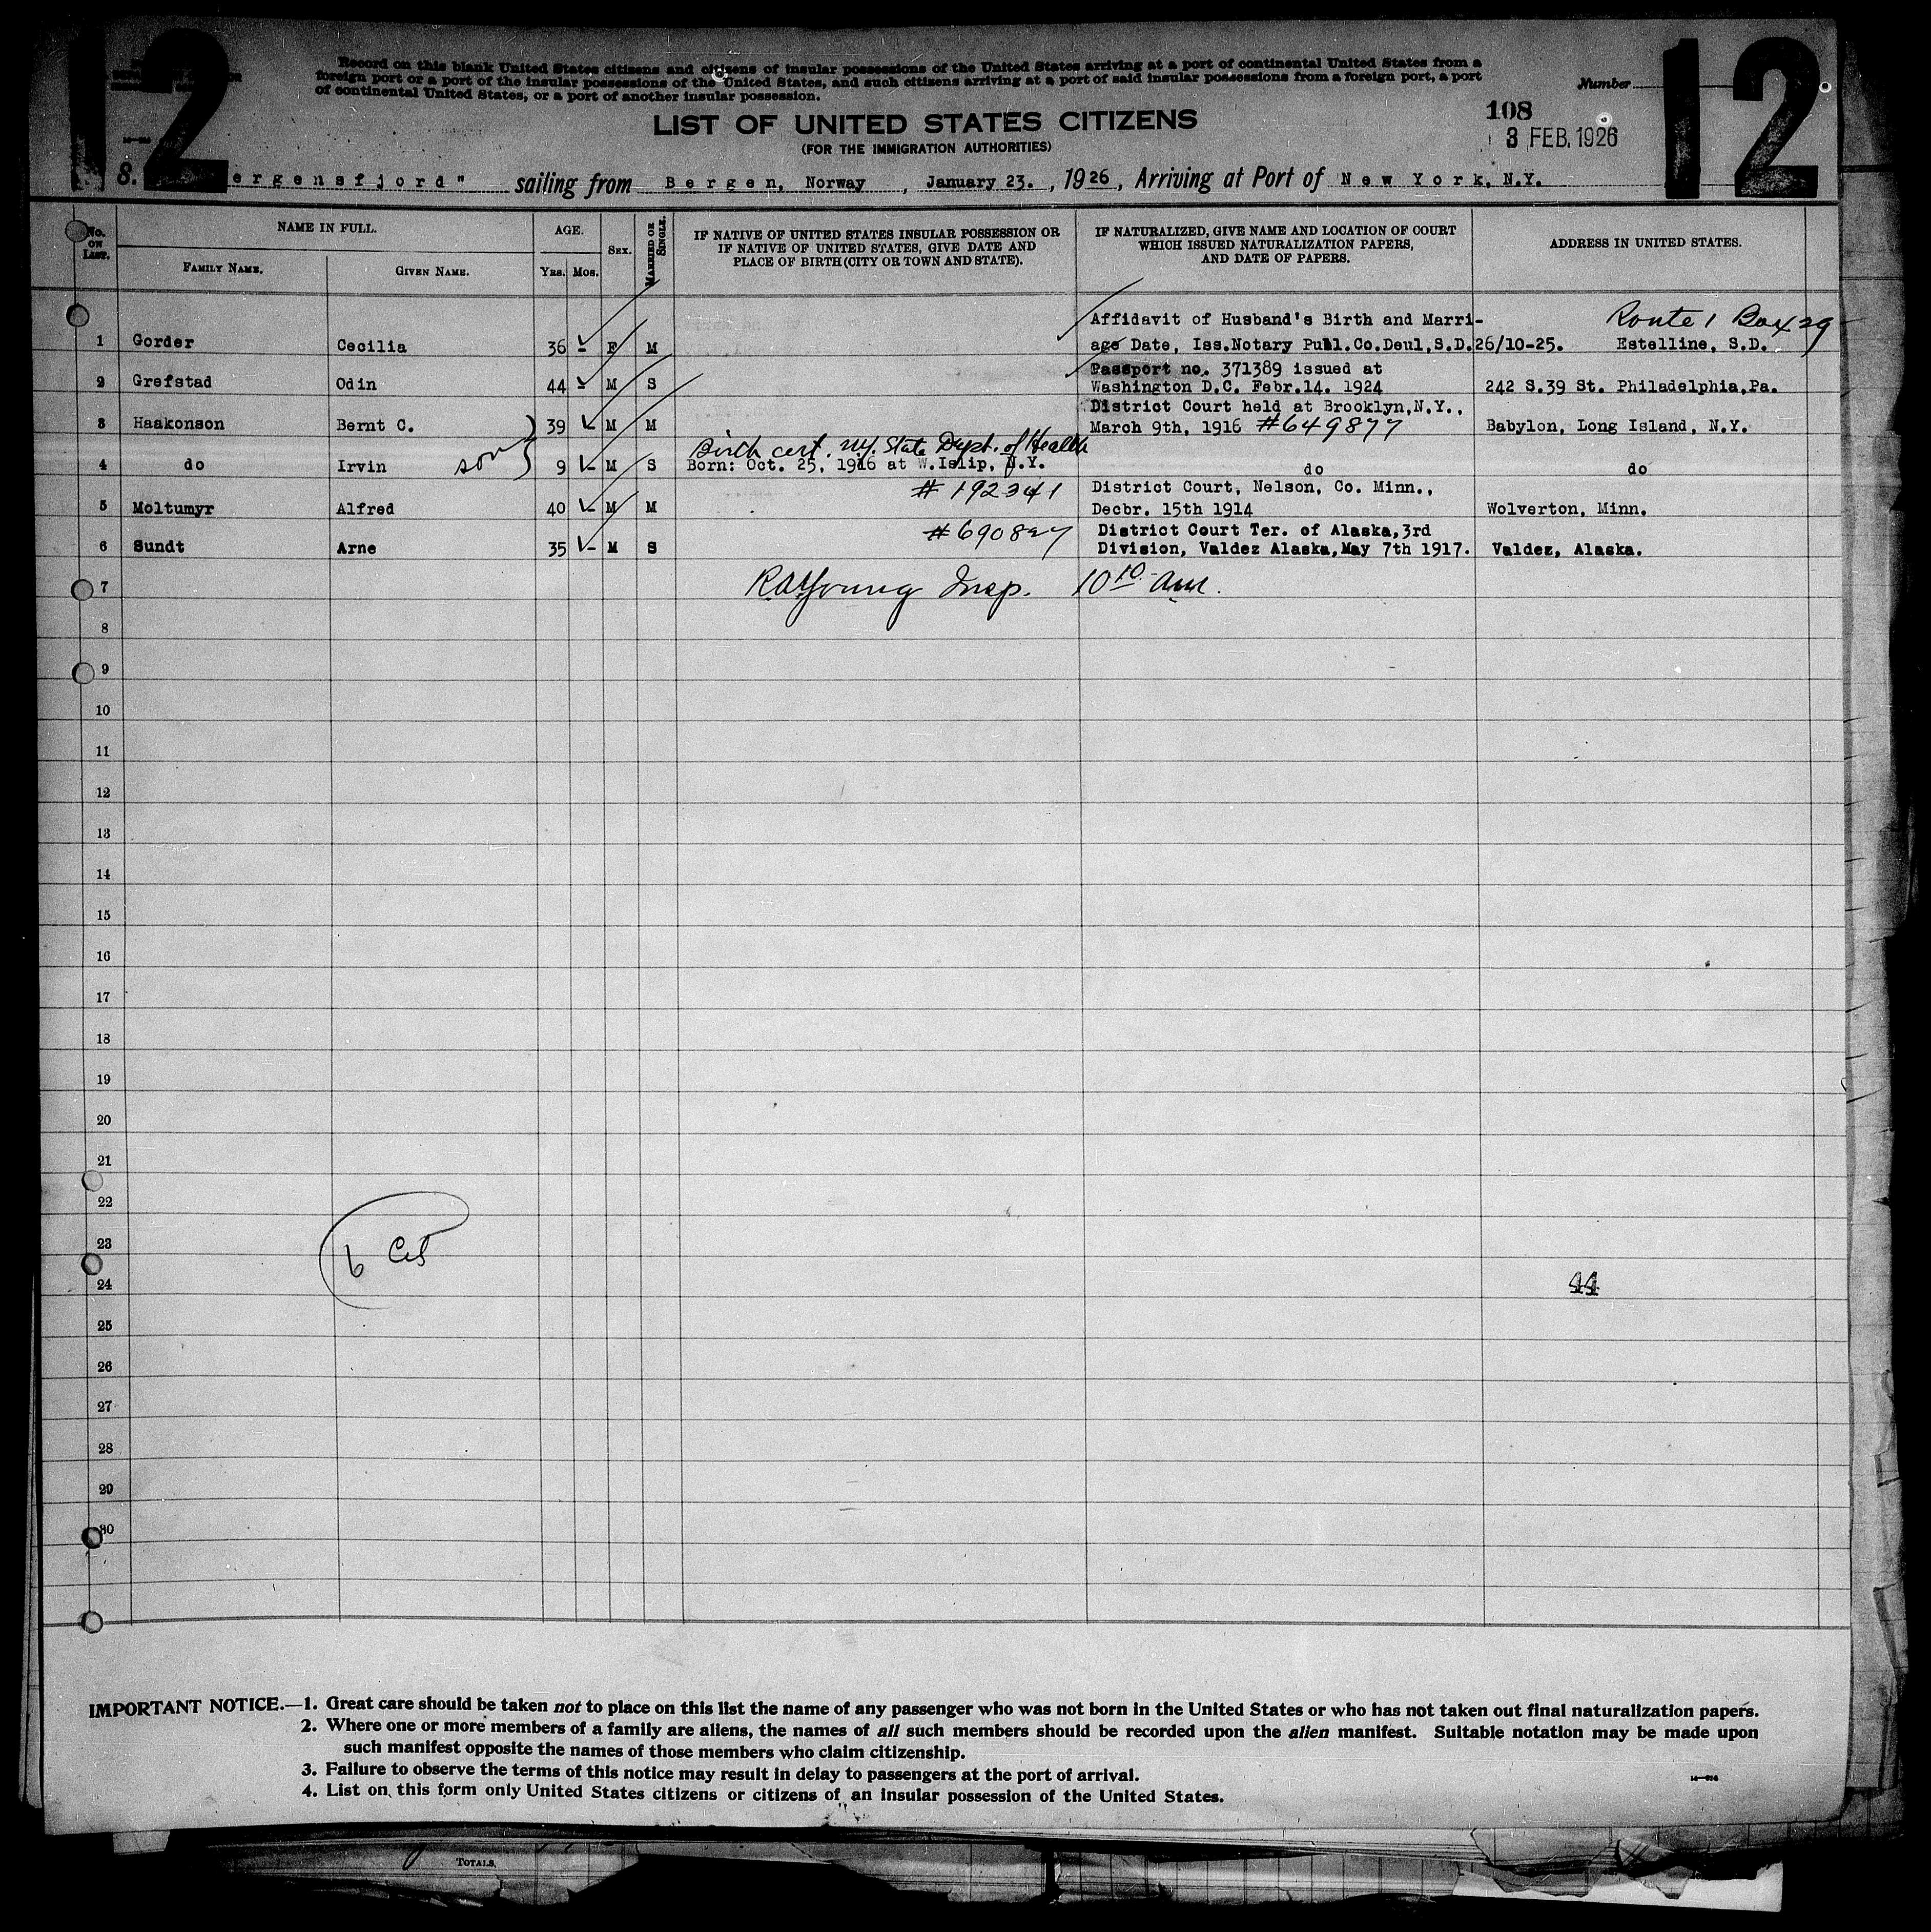 12
12
Record on this blank United States citizens and citizens of insular possessions of the United States arriving at a port of continental United States from a
foreign port or a port of the insular possessions of the United States, and such citizens arriving at a port of said insular possessions from a foreign port, a port
of continental United States, or a port of another insular possession.
Number
LIST OF UNITED STATES CITIZENS
(FOR THE IMMIGRATION AUTHORITIES)
108
3 FEB. 1926
S. ergensfjord" sailing from Bergen, Norway, January 23., 1926, Arriving at Port of New York, N.Y.
No. ON LIST.
NAME IN FULL.
FAMILY NAME.
GIVEN NAME.
AGE.
YRS. MOS.
SEX.
MARRIED OR SINGLE.
IF NATIVE OF UNITED STATES INSULAR POSSESSION OR
IF NATIVE OF UNITED STATES, GIVE DATE AND
PLACE OF BIRTH (CITY OR TOWN AND STATE).
IF NATURALIZED, GIVE NAME AND LOCATION OF COURT
WHICH ISSUED NATURALIZATION PAPERS,
AND DATE OF PAPERS.
ADDRESS IN UNITED STATES.
Affidavit of Husband's Birth and Marri- Route 1 Box 29
1 Gorder Cecilia 36 F M age Date, Iss.Notary Publ.Co.Deul,S.D.26/10-25. Estelline, S.D.
Passport no. 371389 issued at
2 Grefstad Odin 44 M S Washington D.C. Febr.14. 1924 242 S.39 St. Philadelphia,Pa.
District Court held at Brooklyn,N.Y.,
3 Haakonson Bernt C. 39 M M March 9th, 1916 #649877 Babylon, Long Island, N.Y.
Birth cert. N.Y. State Dept. of Health
4 do Irvin son 9 M S Born: Oct. 25, 1916 at W.Islip, N.Y. do do
#192341 District Court, Nelson, Co. Minn.,
5 Moltumyr Alfred 40 M M Decbr. 15th 1914 Wolverton, Minn.
#690827 District Court Ter. of Alaska,3rd
6 Sundt Arne 35 M S Division, Valdez Alaska,May 7th 1917. Valdez, Alaska.
7 Young Insp. 10 10 am.
8
9
10
11
12
13
14
15
16
17
18
19
20
21
22
23
6
24
44
25
26
27
28
29
30
IMPORTANT NOTICE.—1. Great care should be taken not to place on this list the name of any passenger who was not born in the United States or who has not taken out final naturalization papers.
2. Where one or more members of a family are aliens, the names of all such members should be recorded upon the alien manifest. Suitable notation may be made upon
such manifest opposite the names of those members who claim citizenship.
3. Failure to observe the terms of this notice may result in delay to passengers at the port of arrival.
4. List on this form only United States citizens or citizens of an insular possession of the United States.
TOTALS